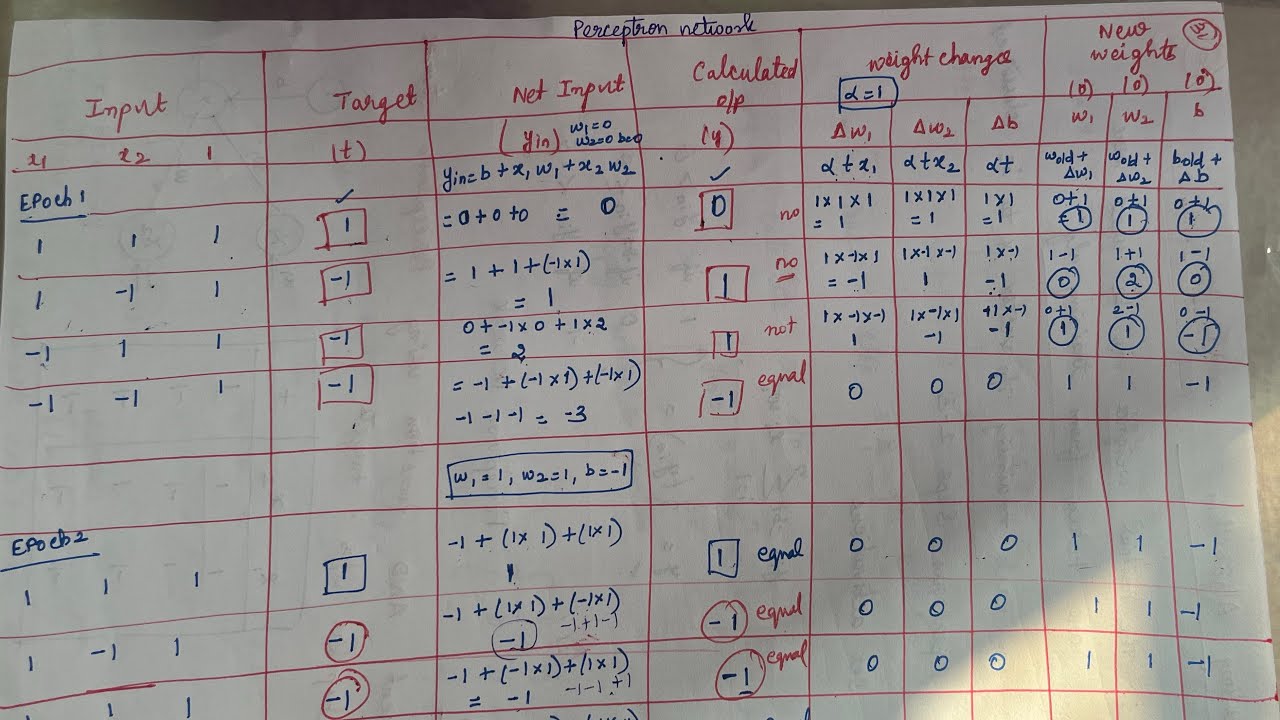 Perceptron network
Input Target Net Input Calculated o/p weight change New weights
α = 1 (0) (0) (0)
x1 x2 1 (t) (yin) w1=0 w2=0 b=0 (y) Δw1 Δw2 Δb w1 w2 b
yin = b + x1 w1 + x2 w2 ✓ α t x1 α t x2 α t wold + Δw1 wold + Δw2 bold + Δb
EPoch 1 ✓
1 1 1 1 = 0 + 0 + 0 = 0 0 no 1 x 1 x 1 = 1 1 x 1 x 1 = 1 1 x 1 = 1 0+1 = 1 0+1 1 0+1 1
1 -1 1 -1 = 1 + 1 + (-1x1) = 1 1 no 1 x -1 x 1 = -1 1 x -1 x -1 1 1 x -1 -1 1-1 0 1+1 2 1-1 0
-1 1 1 -1 0 + -1 x 0 + 1 x 2 = 2 1 not 1 x -1 x -1 1 1 x -1 x 1 -1 +1 x -1 -1 0+1 1 2-1 1 0-1 -1
-1 -1 1 -1 = -1 + (-1x1) + (-1x1) -1 equal 0 0 0 1 1 -1
-1 -1 -1 = -3
w1 = 1, w2 = 1, b = -1
EPoch 2
1 1 1 1 -1 + (1x1) + (1x1) 1 1 equal 0 0 0 1 1 -1
1 -1 1 -1 -1 + (1x1) + (-1x1) -1 -1+1-1 -1 equal 0 0 0 1 1 -1
1 1 -1 -1 + (-1x1) + (1x1) = -1 -1-1+1 -1 equal 0 0 0 1 1 -1